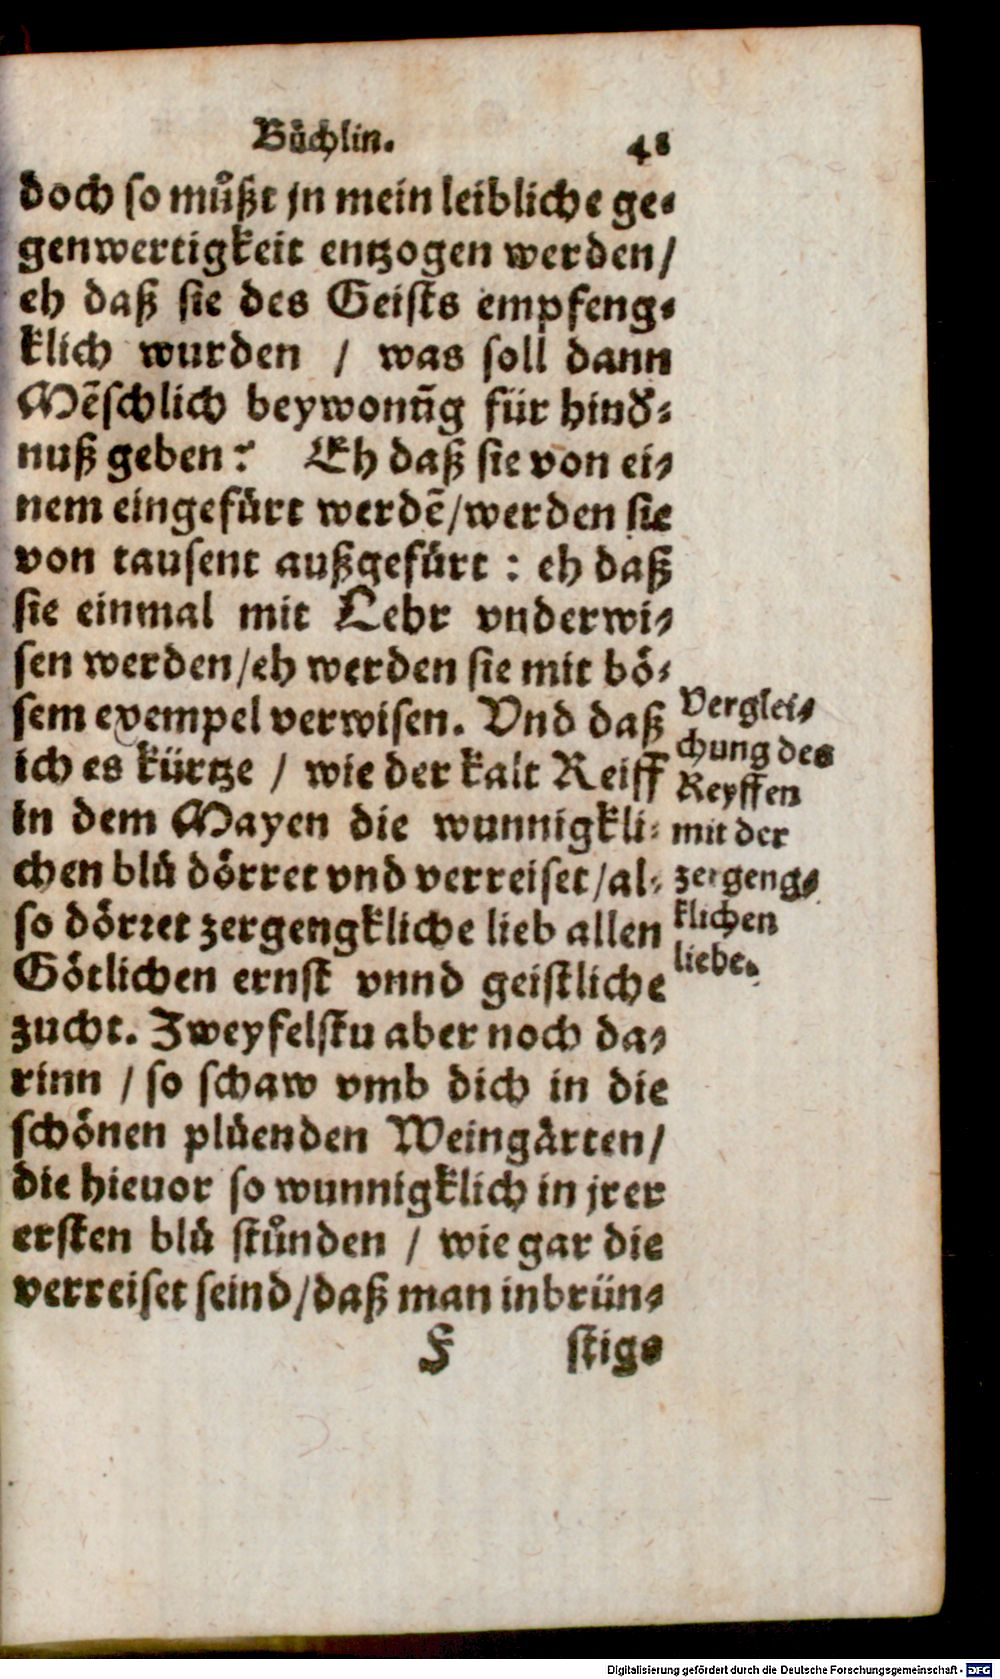 Büchlin. 48
doch so můßt jn mein leibliche ge-
genwertigkeit entzogen werden/
eh daß sie des Geists empfeng-
klich wurden / was soll dann
Mẽschlich beywonũg für hind-
nuß geben? Eh daß sie von ei-
nem eingefürt werdẽ/werden sie
von tausent außgefürt : eh daß
sie einmal mit Lehr vnderwi-
sen werden/eh werden sie mit bö-
sem exempel verwisen. Vnd daß
ich es kürtze / wie der kalt Reiff
in dem Mayen die wunnigkli-
chen blü dörret vnd verreiset/al-
so dörret zergengkliche lieb allen
Götlichen ernst vnnd geistliche
zucht. Zweyfelstu aber noch da-
rinn / so schaw vmb dich in die
schönen plüenden Weingärten/
die hieuor so wunnigklich in jrer
ersten blü stůnden / wie gar die
verreiset seind/daß man inbrün-
F stige
Verglei-
chung des
Reyffen
mit der
zergeng-
klichen
liebe.
Digitalisierung gefördert durch die Deutsche Forschungsgemeinschaft - DFG